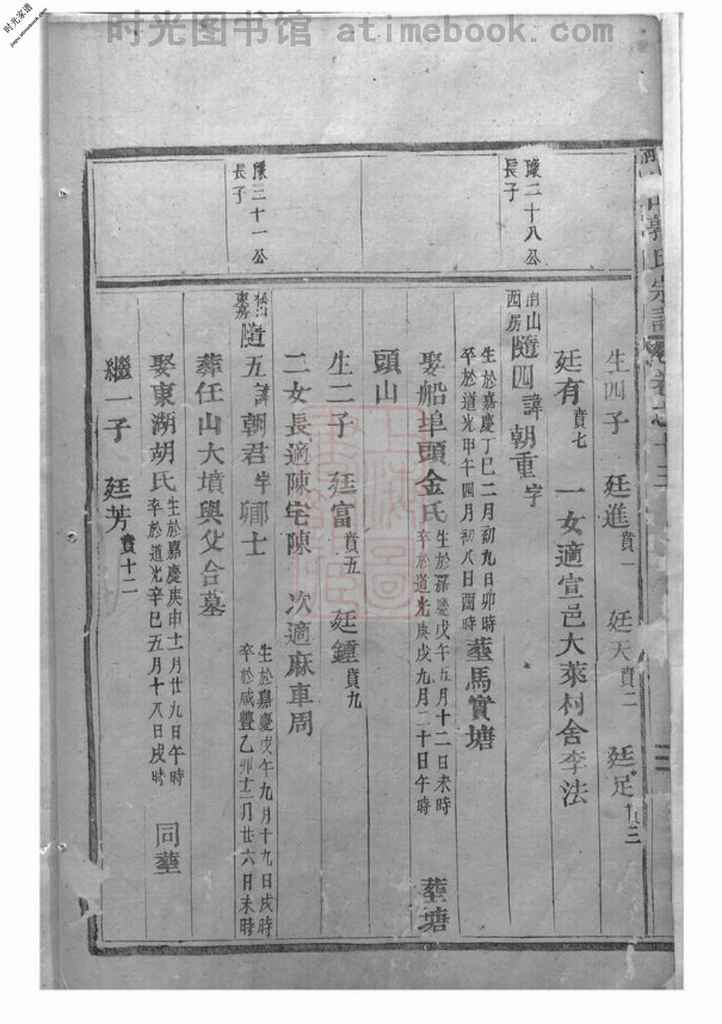 时光图书馆 atimebook.com
时光家谱
郭氏宗譜
豫二十八公
長子
豫三十一公
長子
生四子 廷進賁一 廷天賁二 廷足賁三
廷有賁七 一女適宣邑大萊村舍李法
南山西房隨四諱朝重字
生於嘉慶丁巳二月初九日卯時
卒於道光甲午四月初八日酉時 塟馬實塘
娶船埠頭金氏
生於嘉慶戊午五月十二日未時
卒於道光庚戌九月二十日午時 塟塘
頭山
生二子 廷富賁五 廷鍾賁九
二女長適陳宅陳 次適麻車周
東房隨五諱朝君字卿士
生於嘉慶戊午九月十九日戌時
卒於咸豐乙卯十二月廿六日未時
葬任山大墳與父合墓
娶東湖胡氏
生於嘉慶庚申十一月廿九日午時
卒於道光辛巳五月十八日戌時 同塟
繼一子 廷芳賁十二